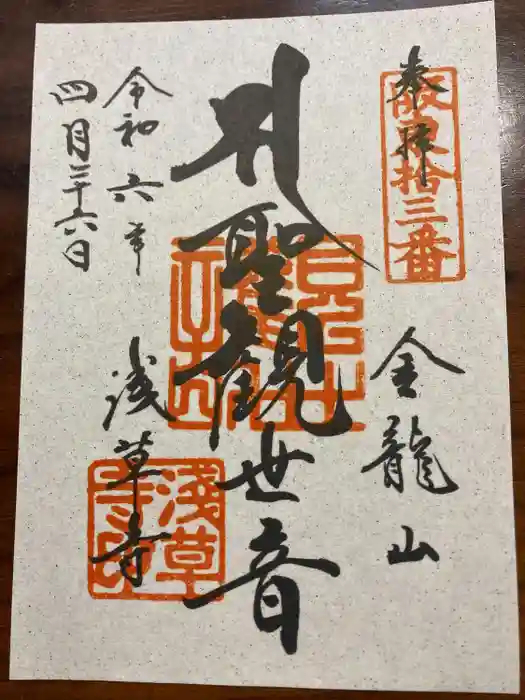 奉拝
坂東拾三番
金龍山
聖観世音
浅草寺
淺草寺印
令和六年
四月二十六日